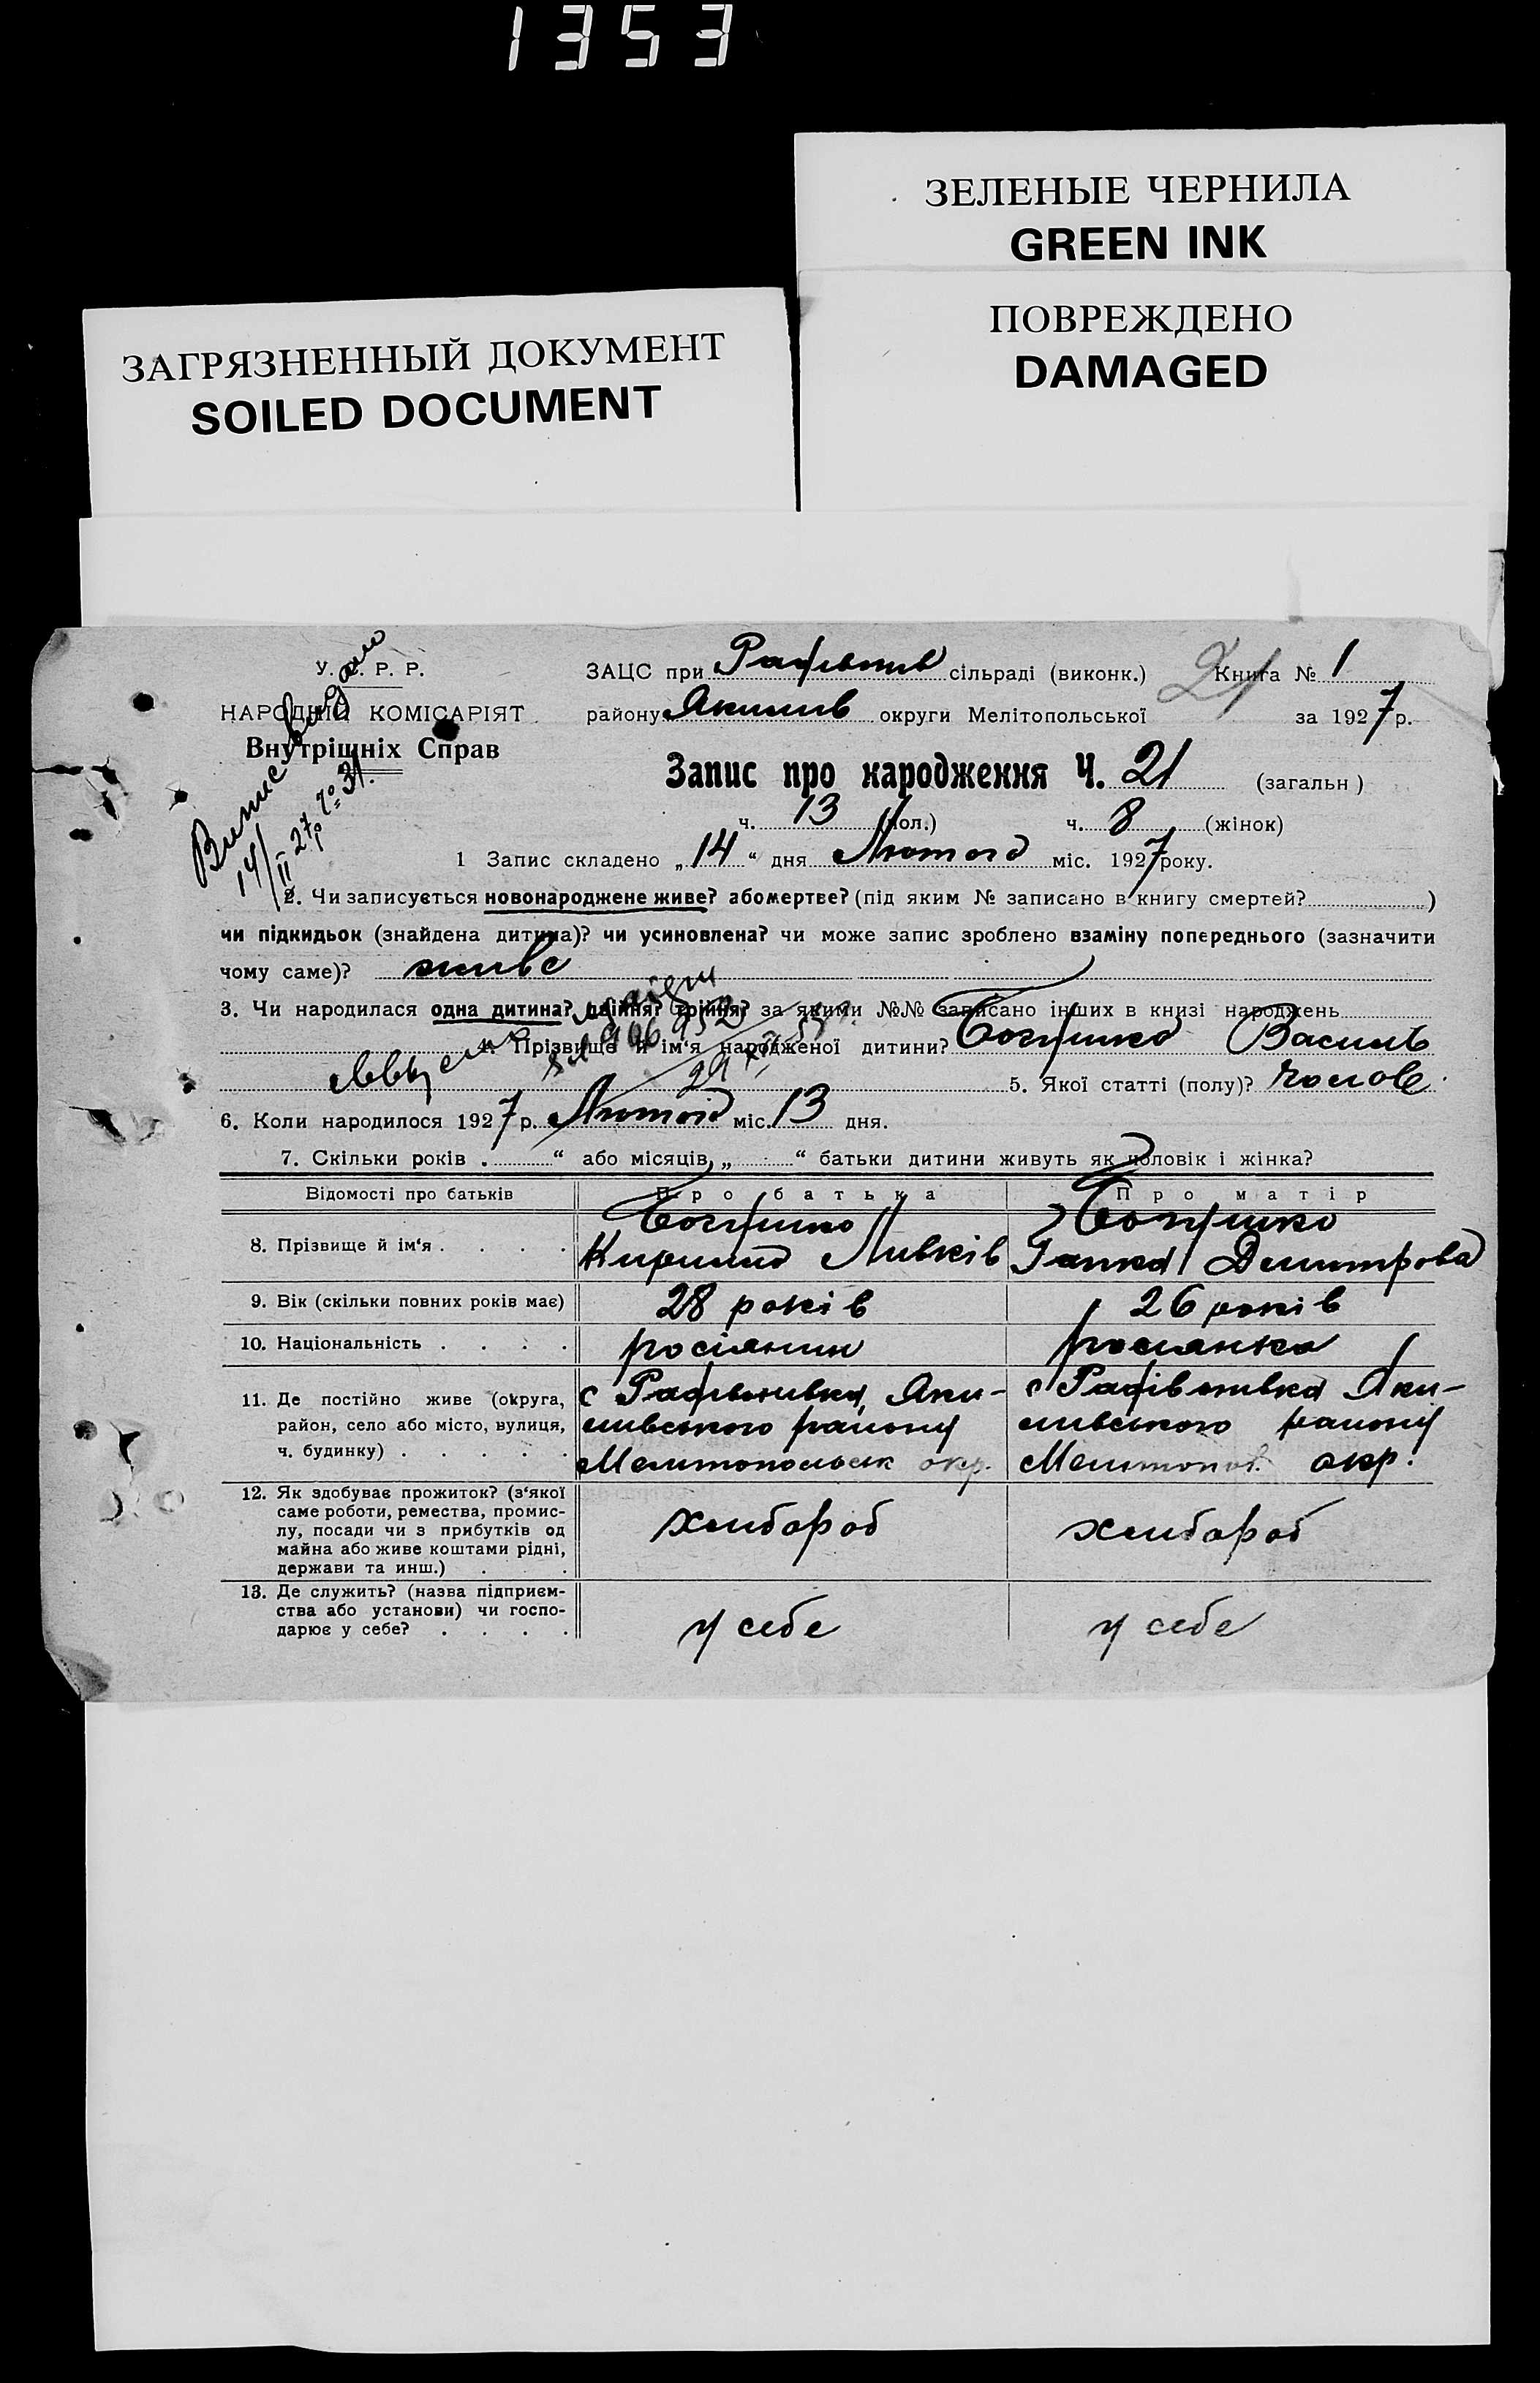 1353
ЗЕЛЕНЫЕ ЧЕРНИЛА
GREEN INK
ПОВРЕЖДЕНО
DAMAGED
ЗАГРЯЗНЕННЫЙ ДОКУМЕНТ
SOILED DOCUMENT
У. Р. Р.
НАРОДНІЙ КОМІСАРІЯТ
Внутрішніх Справ
Випис видано
14/II 27р № 31.
ЗАЦС при сільраді (виконк.) Книга № 1
21
району Якимів округи Мелітопольської за 1927 р.
Запис про народження Ч. 21 (загальн)
ч. 13 (чол.) ч. 8 (жінок)
1 Запис складено „14“ дня Лютого міс. 1927 року.
2. Чи записується новонароджене живе? або мертве? (під яким № записано в книгу смертей? )
чи підкидьок (знайдена дитина)? чи усиновлена? чи може запис зроблено взаміну попереднього (зазначити
чому саме)? живе
3. Чи народилася одна дитина? двійня? трійня? за якими №№ записано інших в книзі народжень
4. Прізвище й ім‘я народженої дитини? Василь
5. Якої статті (полу)? чолов.
6. Коли народилося 1927 р. Лютого міс. 13 дня.
7. Скільки років . “ або місяців „ “ батьки дитини живуть як чоловік і жінка?
Відомості про батьків Про батька Про матір
8. Прізвище й ім‘я . . . .
Кирило Ганна Дмитрова
9. Вік (скільки повних років має) 28 років 26 років
10. Національність . . . . росіянин росіянка
11. Де постійно живе (округа, район, село або місто, вулиця, ч. будинку) . . . . .
с Яки- с Яки-
мівського району мівського району
Мелитопольськ окр. Мелитопол. окр.
12. Як здобуває прожиток? (з‘якої саме роботи, ремества, промислу, посади чи з прибутків од майна або живе коштами рідні, держави та инш.) . .
хлібороб хлібороб
13. Де служить? (назва підприємства або установи) чи господарює у себе? . . . .
у себе у себе